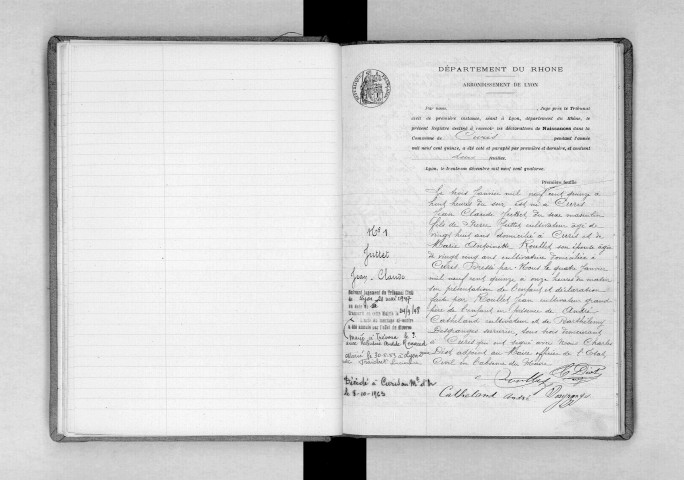 DÉPARTEMENT DU RHONE
ARRONDISSEMENT DE LYON
Par nous, , Juge près le Tribunal
civil de première instance, séant à Lyon, département du Rhône, le
présent Registre destiné à recevoir les déclarations de Naissances dans la
Commune de Curis pendant l'année
mil neuf cent quinze, a été coté et paraphé par première et dernière, et contient
feuillets.
Lyon, le trente-un décembre mil neuf cent quatorze.
Première feuille
Le trois Janvier mil neuf cent quinze à
huit heures du soir est né à Curis
Jean Claude Juttet du sexe masculin
fils de Pierre Juttet cultivateur âgé de
vingt huit ans domicilié à Curis et de
Marie Antoinette Roullet son épouse âgée
de vingt ans cultivatrice domiciliée à
Curis Dressé par Nous le quatre Janvier
mil neuf cent quinze à onze heures du matin
sur présentation de l'enfant et déclaration
faite par Roullet Jean cultivateur grand
père de l'enfant en présence de André
Catheland cultivateur et de Barthélemy
Desgranges serrurier, tous deux domiciliés
à Curis qui ont signé avec nous Charles
Diot adjoint au Maire officier de l'Etat
Civil en l'absence du Maire
Roullet C. Diot
Catheland André
No 1
Juttet
Jean-Claude
Suivant jugement du Tribunal Civil
de Lyon 1947
Transcrit en cette Mairie le
a été annulé par l'effet du divorce
Marié à
avec
Décédé à Curis au Mt d'Or
le 8-10-1963